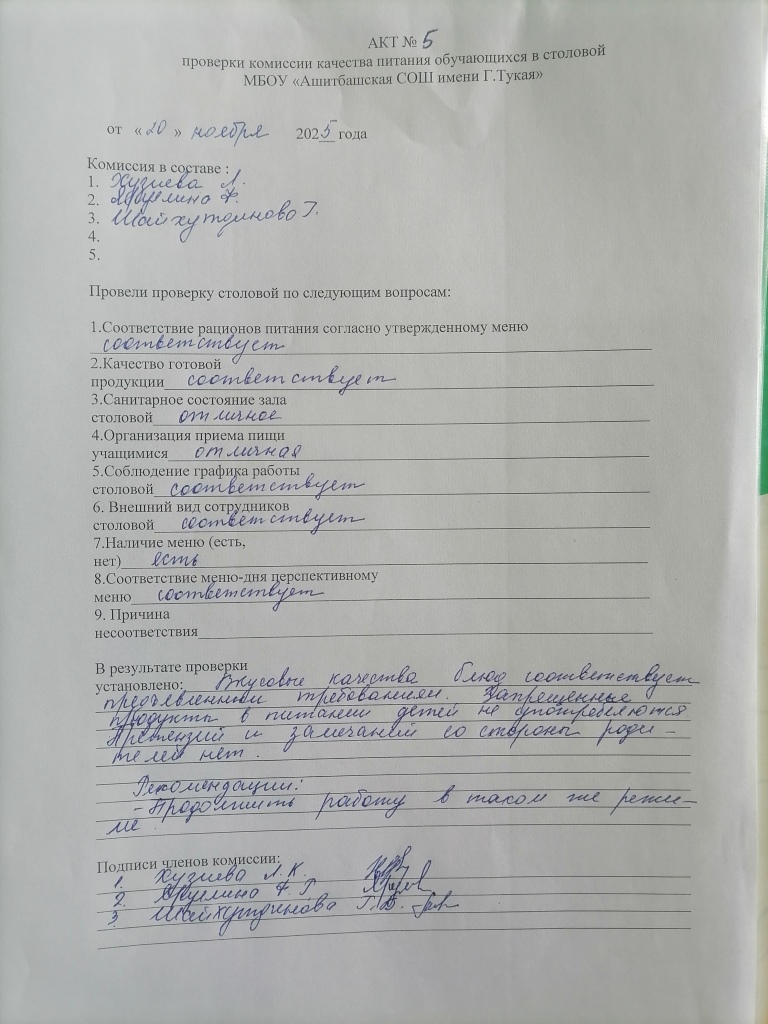 АКТ № 5
проверки комиссии качества питания обучающихся в столовой
МБОУ «Ашитбашская СОШ имени Г.Тукая»
от «20» ноября 2025 года
Комиссия в составе :
1. Хузиева Л.
2. Ф.
3. Шайхутдинова Г.
4.
5.
Провели проверку столовой по следующим вопросам:
1.Соответствие рационов питания согласно утвержденному меню
соответствует
2.Качество готовой
продукции соответствует
3.Санитарное состояние зала
столовой отличное
4.Организация приема пищи
учащимися отличная
5.Соблюдение графика работы
столовой соответствует
6. Внешний вид сотрудников
столовой соответствует
7.Наличие меню (есть,
нет) есть
8.Соответствие меню-дня перспективному
меню соответствует
9. Причина
несоответствия
В результате проверки
установлено: Вкусовые качества блюд соответствует
предъявленным требованиям. Запрещенные
продукты в питании детей не употребляются
Претензий и замечаний со стороны роди-
телей нет.
Рекомендации:
- Продолжить работу в таком же режи-
ме
Подписи членов комиссии:
1. Хузиева Л. К.
2. Ф. Г.
3 Шайхутдинова Г.В.